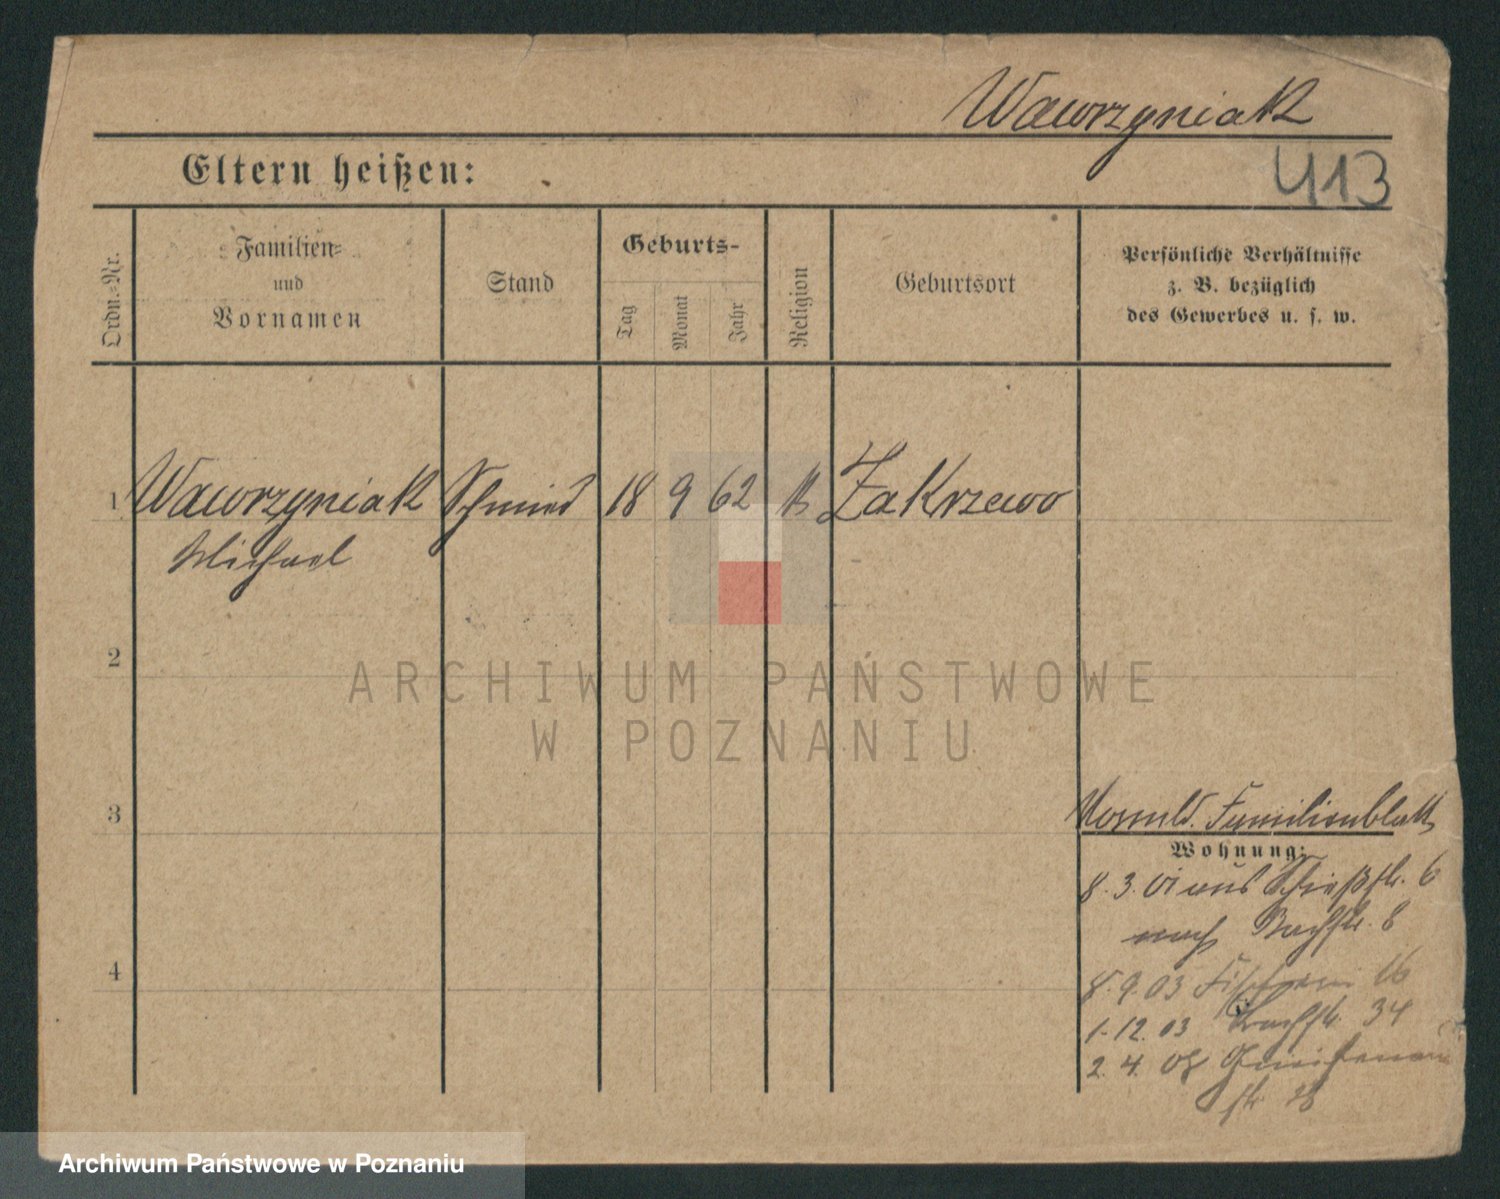 Wawrzyniak
Eltern heißen:
413
Ordn.-Nr.
Familien-
und
Vornamen
Stand
Geburts-
Tag
Monat
Jahr
Religion
Geburtsort
Persönliche Verhältnisse
z. B. bezüglich
des Gewerbes u. s. w.
1 Wawrzyniak Schmied 18 9 62 k Zakrzewo
Michael
2
ARCHIWUM PAŃSTWOWE
W POZNANIU
3
Familienblatt
Wohnung:
8. 3. 01 aus Schießstr. 6
nach Bachstr. 8
4
8. 9. 03 Fischerei 16
1. 12. 03 Bachstr. 34
2. 4.
str. 28
Archiwum Państwowe w Poznaniu